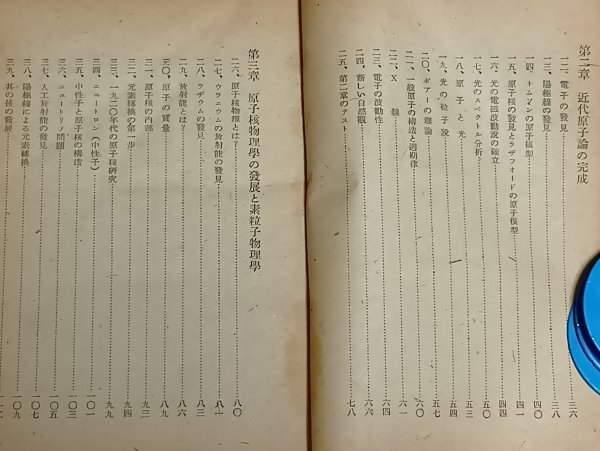 第二章 近代原子論の完成
一二、電子の發見……三六
一三、陽極線の發見……三八
一四、トムソンの原子模型……四〇
一五、原子核の發見とラザフォードの原子模型……四一
一六、光の電磁波動説の確立……五〇
一七、光のスペクトル分析……五三
一八、原子と光……五四
一九、光の粒子説……五七
二〇、ボアーの理論……六〇
二一、一般原子の構造と週期律……六一
二二、X線……六四
二三、電子の波動性……六六
二四、新しい自然觀
二五、第二章のテスト……七八
第三章 原子核物理學の發展と素粒子物理學
二六、原子核物理とは?……八〇
二七、ウラニウムの放射能の發見……八一
二八、ラヂウムの發見……八三
二九、放射能とは?……八六
三〇、原子の質量……八九
三一、原子核の内部……九三
三二、元素轉換の第一步……九四
三三、一九二〇年代の原子核研究……九九
三四、ニュートロン(中性子)……一〇一
三五、中性子と原子核の構造……一〇三
三六、ニュートリノ問題……一〇五
三七、人工放射能の發見……一〇七
三八、陽極線による元素轉換……一〇九
三九、其の後の發展